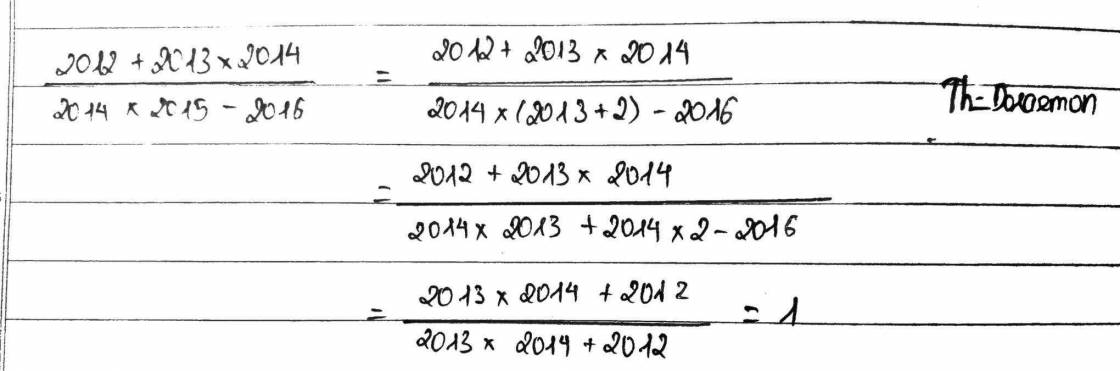 2012 + 2013 × 2014 = 2012 + 2013 × 2014
2014 × 2015 - 2016 2014 × (2013 + 2) - 2016
Th-Doraemon
= 2012 + 2013 × 2014
2014 × 2013 + 2014 × 2 - 2016
= 2013 × 2014 + 2012 = 1
2013 × 2014 + 2012